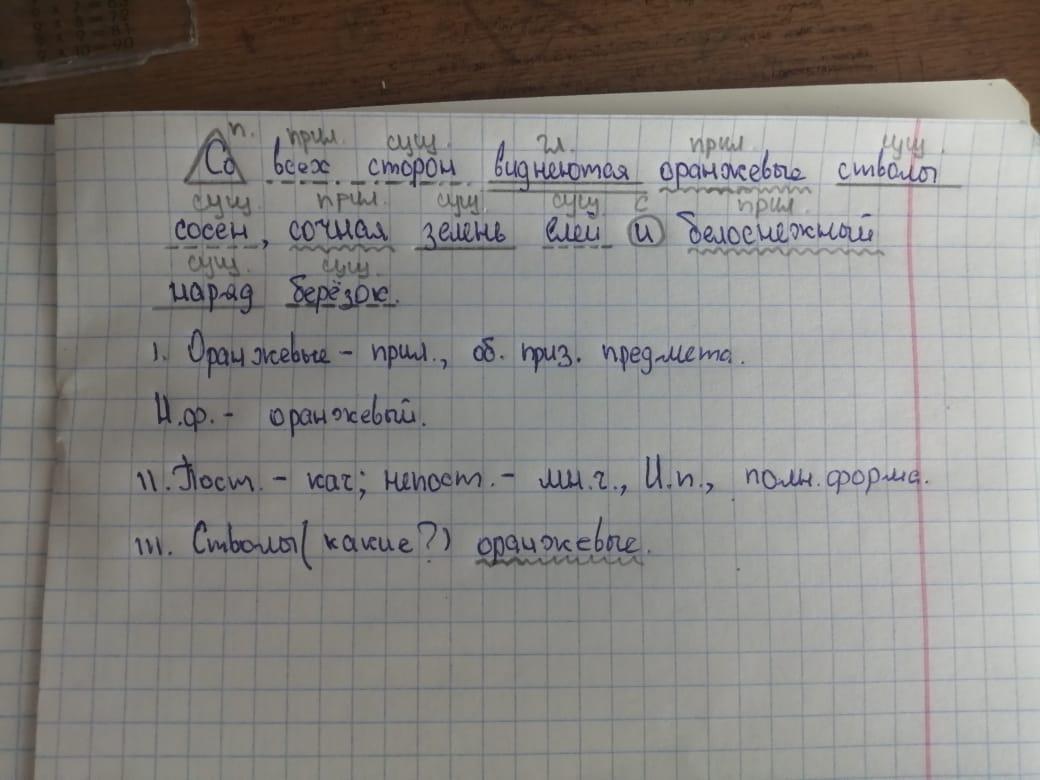 п. прил. сущ. гл. прил. сущ.
Со всех сторон виднеются оранжевые стволы
сущ. прил. сущ. сущ. с прил.
сосен, сочная зелень елей и белоснежный
сущ. сущ.
наряд берёзок.
I. Оранжевые - прил., об. приз. предмета.
Н.ф. - оранжевый.
II. Пост. - кач; непост. - мн.ч., И.п., полн. форма.
III. Стволы (какие?) оранжевые.